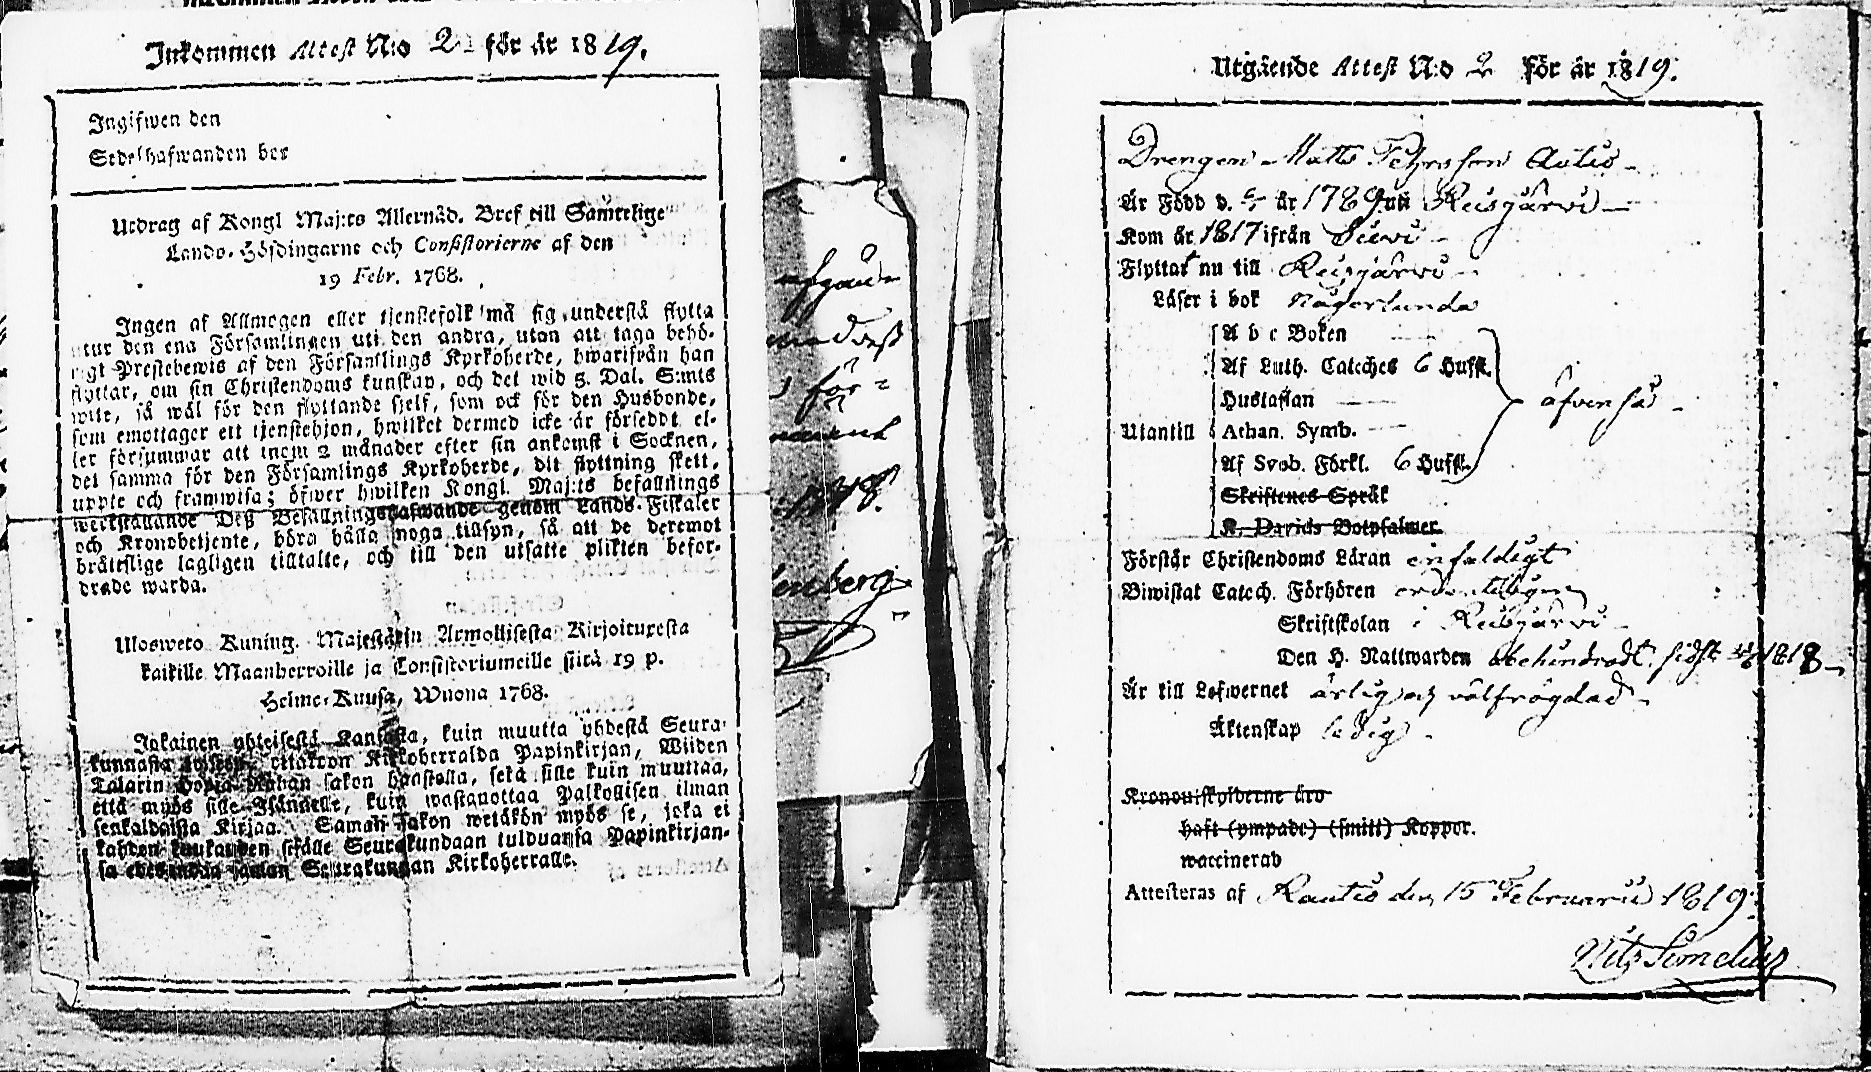 Inkommen Attest N:o 2 för år 1819.
Ingifwen den
Sedelhafwanden bes
Utdrag af Kongl Maj:ts Allernåd. Bref till Samtelige
Lands-Höfdingarne och Consistorierne af den
19 Febr. 1768.
Ingen af Allmogen eller tjenstefolk må sig understå flytta
utur den ena Församlingen uti den andra, utan att taga behö-
rigt Prestebewis af den Församlings Kyrkoherde, hwarifrån han
flyttar, om sin Christendoms kunskap, och det wid 5. Dal. S:mts
wite, så wäl för den flyttande sjelf, som ock för den Husbonde,
som emottager ett tjenstehjon, hwilket dermed icke är förseddt el-
ler försummar att inom 2 månader efter sin ankomst i Socknen,
det samma för den Församlings Kyrkoherde, dit flyttning skett,
uppte och framwisa; öfwer hwilken Kongl. Maj:ts befallnings
werkställande Deß Befallningshafwande genom Lands-Fiskaler
och Kronobetjente, böra hålla noga tillsyn, så att de deremot
bråtslige lagligen tilltalte, och till den utsatte plikten befor-
drade warda.
Ulosweto Kuning. Majestätin Armollisesta Kirjoituxesta
kaikille Maanherroille ja Consistoriumeille siitä 19 p.
Helme-Kuusa, Wuona 1768.
Jokainen yhteisestä Kansasta, kuin muutta yhdestä Seura-
kunnasta toiseen, ottakoon Kirkoherralda Papinkirjan, Wiiden
Talarin Hopia-Rahan sakon haastolla, sekä sille kuin muuttaa,
että myös sille Isännelle, kuin wastanottaa Palkollisen ilman
senkaldaista Kirjaa. Saman sakon wetäkön myös se, joka ei
kahden kuukauden sisälle Seurakundaan tulduansa Papinkirjan-
sa edesandaa saman Seurakunnan Kirkoherralle.
afgåen
för=
1818.
enberg
Utgående Attest N:o 2 För år 1819.
Drengen Matts Petersson Autio
Är Född d. år 1789 uti Reisjärwi
Kom år 1817 ifrån Siewi
Flyttar nu till Reisjärwi
Läser i bok någorlunda
A b c Boken
Af Luth. Cateches 6 Hufst.
Hustaflan
Utantill Athan. Symb. äfvenså
Af Sveb. Förkl. 6 Hufst.
Skriftenes Språk
K. Davids Botpsalmer.
Förstår Christendoms Läran enfaldigt
Biwistat Catech. Förhören ordentligen
Skriftskolan i Reisjärwi
Den H. Nattwarden obehindradt, sidst 1818
Är till Lefwernet ärlig och välfrögdad
Äktenskap ledig
Kronoutskylderne äro
haft (ympade) (smitt) Koppor.
waccinerad
Attesteras af Rautio den 15 Februarii 1819.
Nils Simelius